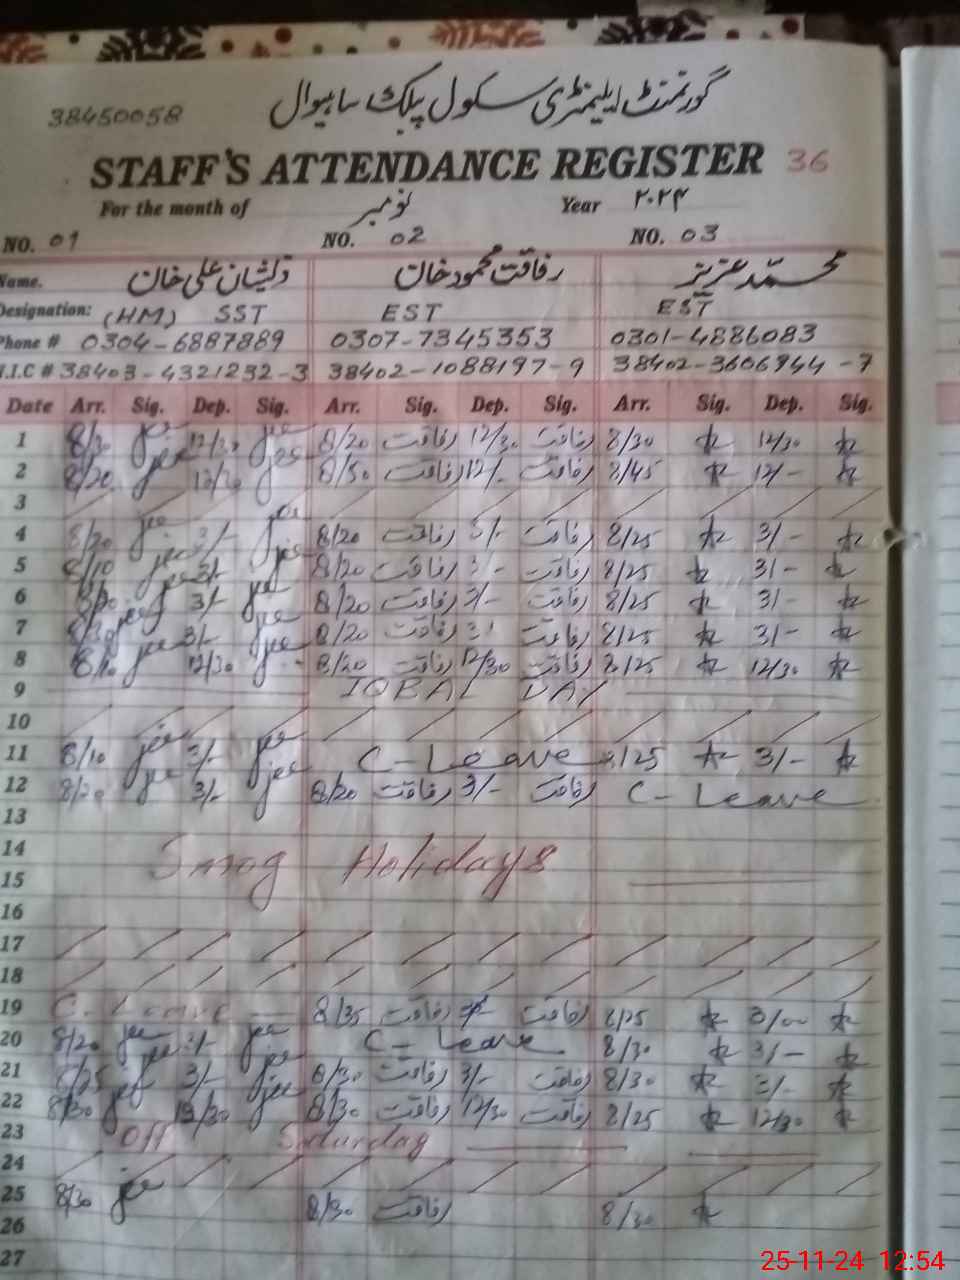 گورنمنٹ ایلیمنٹری سکول پبلک ساہیوال
38450058
STAFF'S ATTENDANCE REGISTER 36
For the month of نومبر Year ۲۰۲۴
NO. 01 NO. 02 NO. 03
Name. ذیشان علی خان رفاقت محمود خان محمد عزیز
Designation: (HM) SST EST EST
Phone # 0304-6887889 0307-7345353 0301-4886083
N.I.C # 38403-4321232-3 38402-1088197-9 38402-3606944-7
Date Arr. Sig. Dep. Sig. Arr. Sig. Dep. Sig. Arr. Sig. Dep. Sig.
1 8/30 12/30 8/20 رفاقت 12/30 رفاقت 8/30 12/30
2 8/20 12/30 8/50 رفاقت 12/- رفاقت 8/45 12/-
3
4 8/20 3/- 8/20 رفاقت 3/- رفاقت 8/25 3/-
5 8/10 3/- 8/20 رفاقت 3/- رفاقت 8/25 3/-
6 3/- 8/20 رفاقت 3/- رفاقت 8/25 3/-
7 8/30 3/- 8/20 رفاقت 3/ رفاقت 8/25 3/-
8 8/10 12/30 8/20 رفاقت 12/30 رفاقت 8/25 12/30
9 IQBAL DAY
10
11 8/10 3/- C-Leave 8/25 3/-
12 8/20 3/- 8/20 رفاقت 3/- رفاقت C-Leave
13
14 Smog Holidays
15
16
17
18
19 C. Leave 8/35 رفاقت رفاقت 8/25 3/00
20 8/20 3/- C-Leave 8/30 3/-
21 8/25 3/- 8/30 رفاقت 3/- رفاقت 8/30 3/-
22 8/30 12/30 8/30 رفاقت 12/30 رفاقت 8/25 12/30
23 Off Saturday
24
25 8/30 8/30 رفاقت 8/30
26
27
25-11-24 12:54